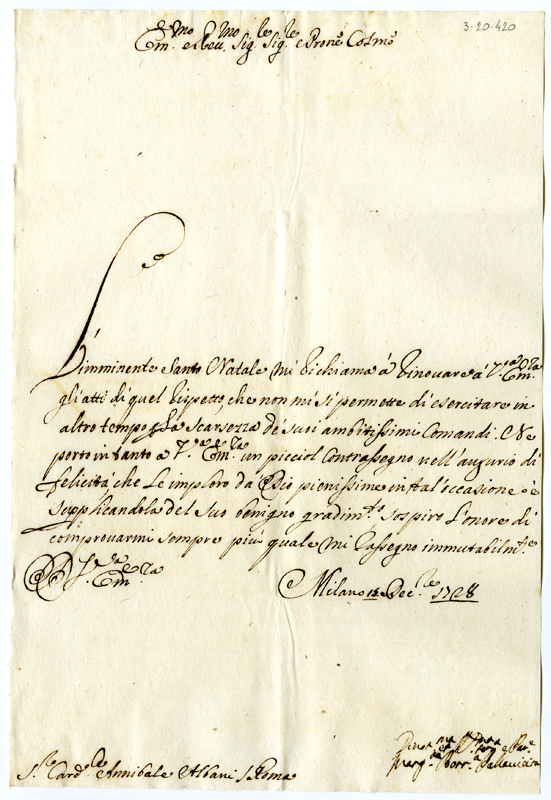 3-20-420
Em.mo e Reu. Sig. Sig. e Prone Cosmo
L'imminente Santo Natale mi richiama à rinouare à V.ra Em.za
gli atti di quel rispetto, che non mi si permette di esercitare in
altro tempo p la Scarsezza de' suoi ambitissimi Comandi. Ne
porto intanto a V.ra Em.za un picciol Contrassegno nell'augurio di
felicità che Le imploro da Dio pienissime in tal'occasione, e
supplicandola del suo benigno gradim.to sospiro l'onore di
comprouarmi sempre più quale mi rassegno immutabilm.te
Di V.ra Em.za
Milano Dec.re 1728
S.re Card.le Annibale Albani / Roma
Marg.ta Pallauicina